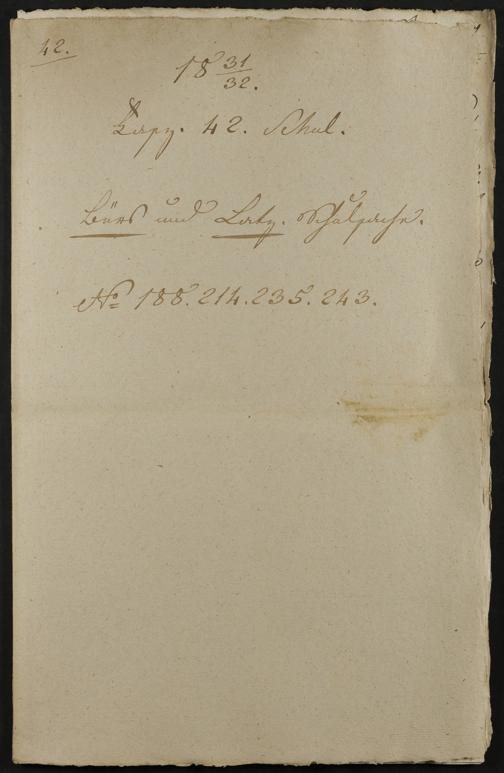 42.
18 31/32.
Fasz. 42. Schul.
Bürs und Latz. Schulsache.
No 188. 214. 235. 243.